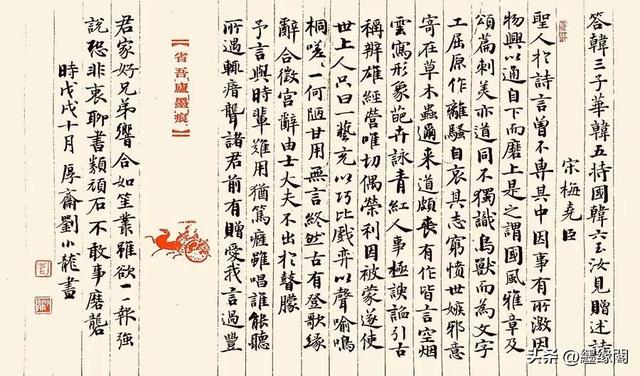 答韓三子華韓五持國韓六玉汝見贈述詩
宋梅堯臣
聖人於詩言曾不專其中因事有所激因
物興以通自下而磨上是之謂國風雅章及
頌篇刺美亦道同不獨識鳥獸而為文字
工屈原作離騷自哀其志窮憤世嫉邪意
寄在草木蟲邇来道頗喪有作皆言空烟
雲寫形象葩卉詠青紅人事極諛諂引古
稱辨雄經營唯切偶榮利因被蒙遂使
世上人只曰一藝充以巧比戲弈以聲喻鳴
桐嗟一何陋甘用無言終然古有登歌緣
辭合徵宮辭由士大夫不出於瞽矇
予言與時輩難用猶篤癃雖唱誰能聽
所遇輒瘖聾諸君前有贈愛我言過豐
【省吾廬墨痕】
君家好兄弟響合如笙叢雖欲一一報強
說恐非衷聊書類頑石不敢事磨礱
時戊戌十月厚齋劉小龍書
头条 @缘阁